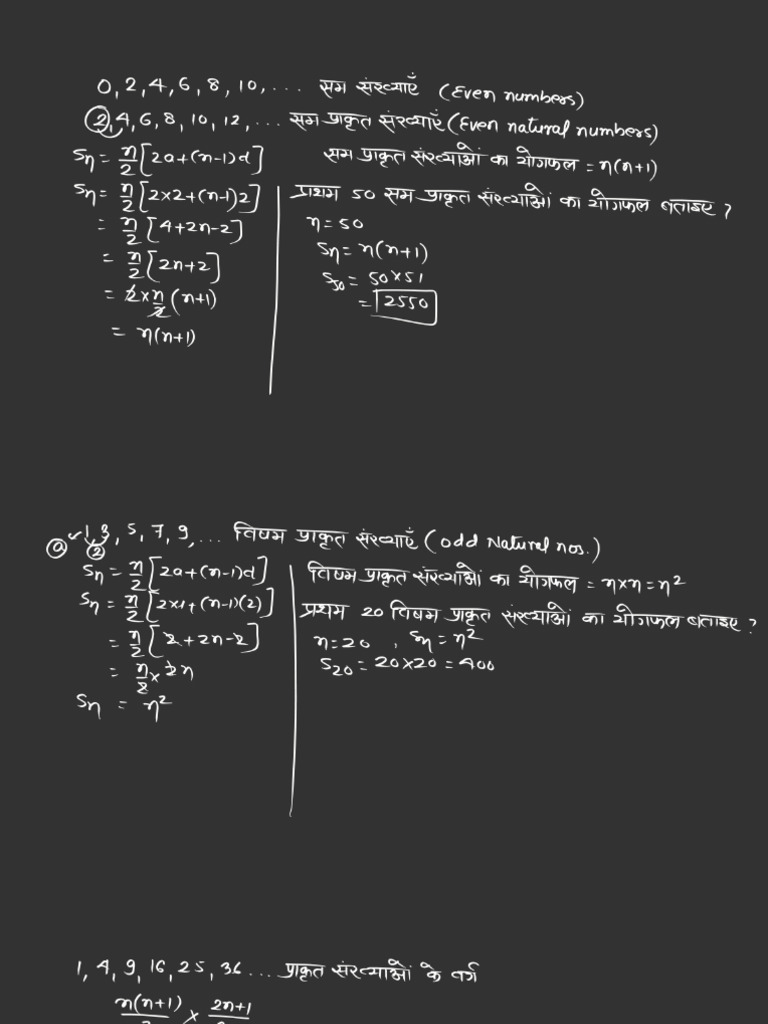 0, 2, 4, 6, 8, 10, ... सम संख्याएँ (Even numbers)
2, 4, 6, 8, 10, 12, ... सम प्राकृत संख्याएँ (Even natural numbers)
Sn = n/2 [2a+(n-1)d]
सम प्राकृत संख्याओं का योगफल = n(n+1)
Sn = n/2 [2×2+(n-1)2]
= n/2 [4+2n-2]
= n/2 [2n+2]
= 2×n/2 (n+1)
= n(n+1)
प्राथम 50 सम प्राकृत संख्याओं का योगफल बताइए ?
n=50
Sn = n(n+1)
S50 = 50×51
= 2550
1, 3, 5, 7, 9, ... विषम प्राकृत संख्याएँ (odd Natural nos.)
a 2
Sn = n/2 [2a+(n-1)d]
Sn = n/2 [2×1+(n-1)(2)]
= n/2 [2+2n-2]
= n/2 × 2n
Sn = n²
विषम प्राकृत संख्याओं का योगफल = n×n = n²
प्रथम 20 विषम प्राकृत संख्याओं का योगफल बताइए ?
n=20 , Sn = n²
S20 = 20×20 = 400
1, 4, 9, 16, 25, 36 ... प्राकृत संख्याओं के वर्ग
n(n+1) × 2n+1